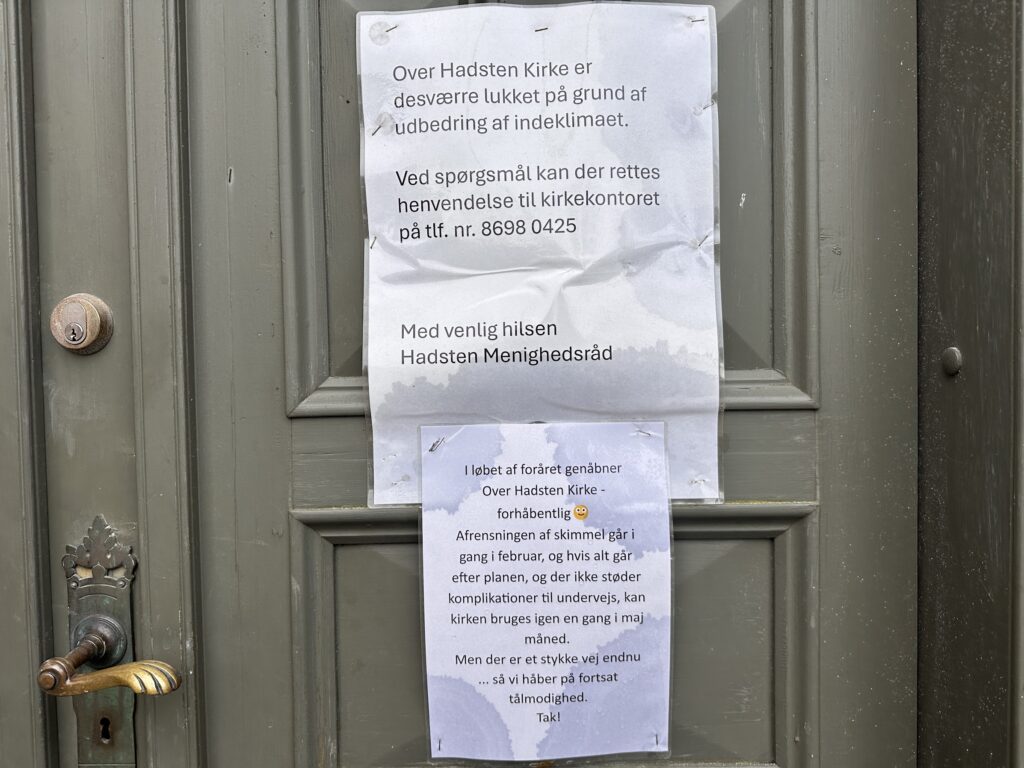 Over Hadsten Kirke er
desværre lukket på grund af
udbedring af indeklimaet.
Ved spørgsmål kan der rettes
henvendelse til kirkekontoret
på tlf. nr. 8698 0425
Med venlig hilsen
Hadsten Menighedsråd
I løbet af foråret genåbner
Over Hadsten Kirke -
forhåbentlig 🙂
Afrensningen af skimmel går i
gang i februar, og hvis alt går
efter planen, og der ikke støder
komplikationer til undervejs, kan
kirken bruges igen en gang i maj
måned.
Men der er et stykke vej endnu
... så vi håber på fortsat
tålmodighed.
Tak!